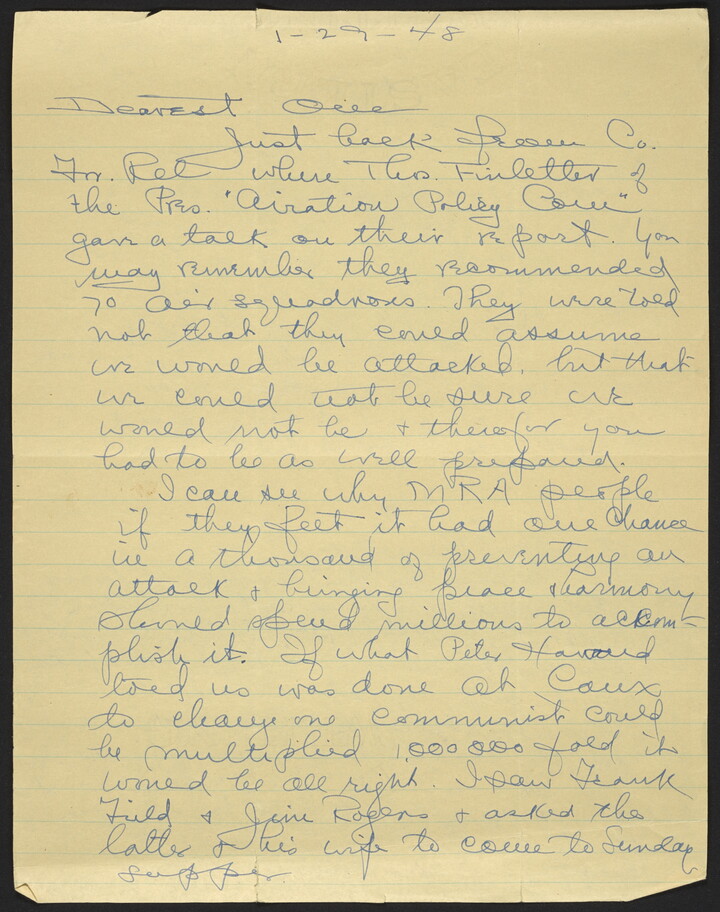 1-29-48
Dearest
Just back from Co.
For. Rel where Thos. Finletter of
the Pres. "Airation Policy Com"
gave a talk on their report. You
may remember they recommended
70 air squadrons. They were told
not that they could assume
we would be attacked, but that
we could not be sure we
would not be & therefor you
had to be as well prepared.
I can see why MRA people
if they feel it had one chance
in a thousand of preventing an
attack & bringing peace & harmony
should spend millions to accom-
plish it. If what Peter Howard
told us was done at Caux
to change one communist could
be multiplied 1,000 000 fold it
would be all right. I saw Frank
Field & Jim Rogers & asked the
latter & his wife to come to Sunday
supper.